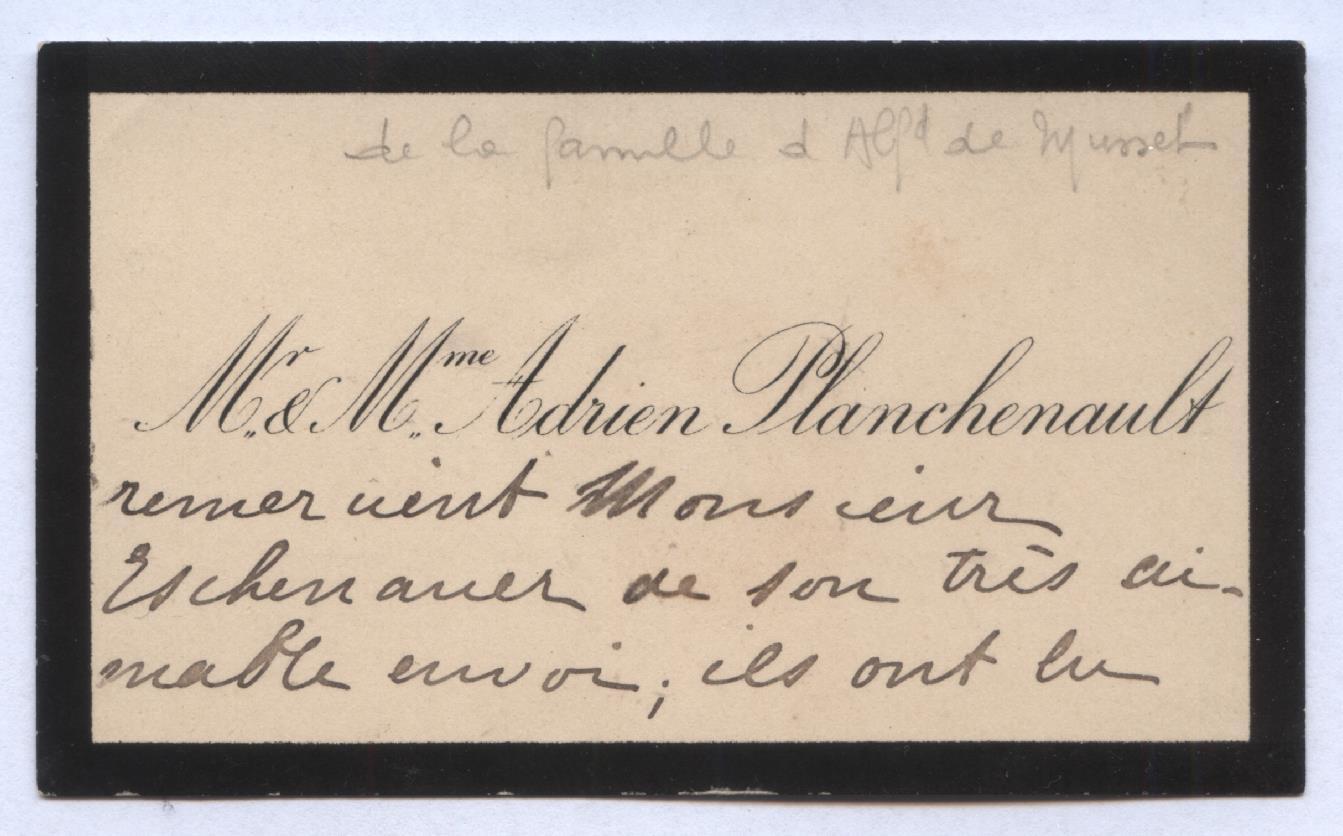 de la famille d Alfd de Musset
Mr. & Mme. Adrien Planchenault
remercient Monsieur
Eschenauer de son très ai-
mable envoi; ils ont lu